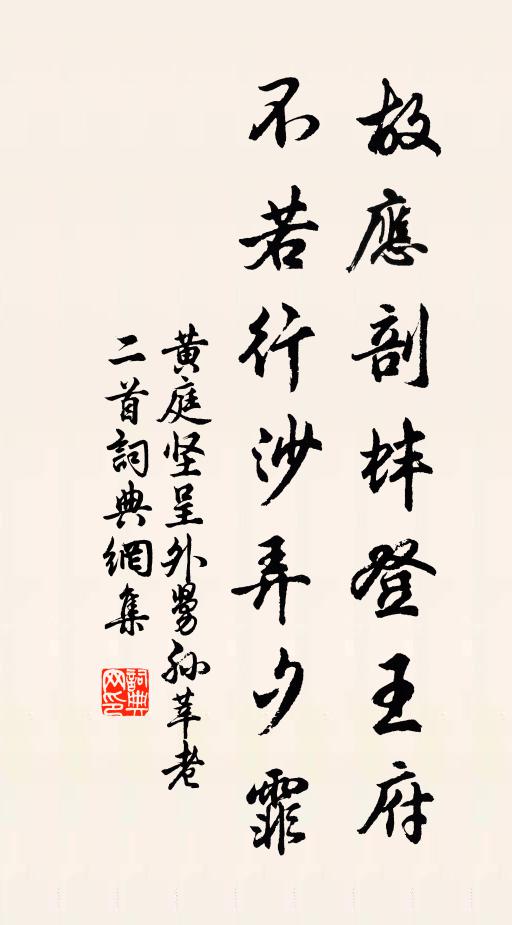 故應剖蚌登王府
不若行沙弄夕霏
黄庭坚呈外舅孙莘老
二首詞典網集
詞典网印